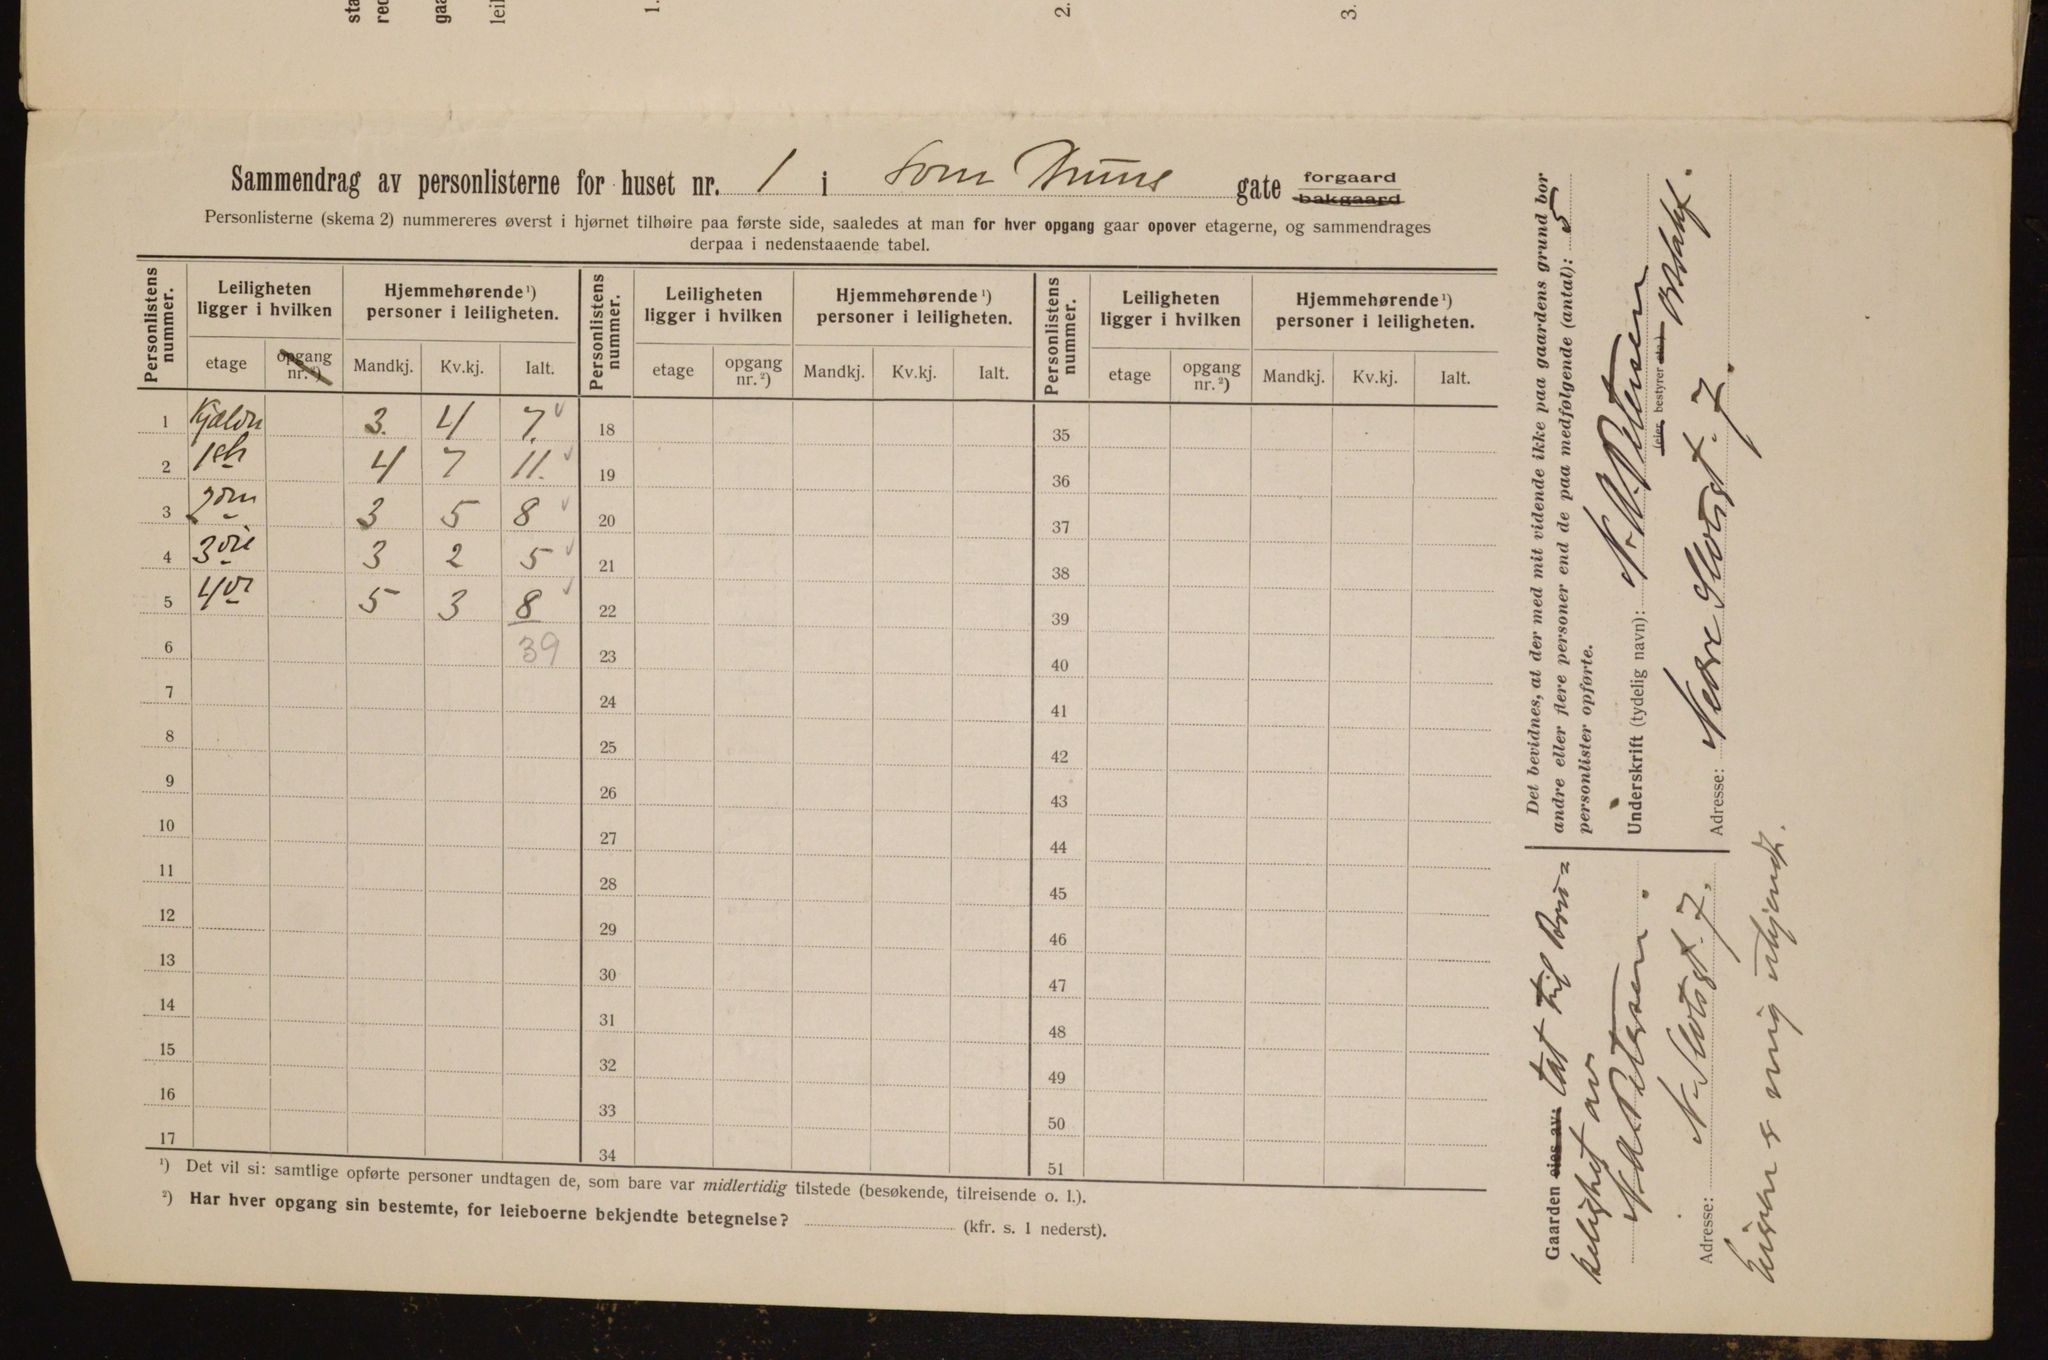 sta
red
gaa
leil
1.
2.
3.
Sammendrag av personlisterne for huset nr. 1 i gate forgaard bakgaard
Personlisterne (skema 2) nummereres øverst i hjørnet tilhøire paa første side, saaledes at man for hver opgang gaar opover etagerne, og sammendrages
derpaa i nedenstaaende tabel.
Personlistens nummer. Leiligheten ligger i hvilken Hjemmehørende ¹) personer i leiligheten. Personlistens nummer. Leiligheten ligger i hvilken Hjemmehørende ¹) personer i leiligheten. Personlistens nummer. Leiligheten ligger i hvilken Hjemmehørende ¹) personer i leiligheten.
etage opgang nr. ²) Mandkj. Kv.kj. Ialt. etage opgang nr. ²) Mandkj. Kv.kj. Ialt. etage opgang nr. ²) Mandkj. Kv.kj. Ialt.
1 Kjælder 3. 4 7. 18 35
2 1ste 4 7 11. 19 36
3 2den 3 5 8 20 37
4 3die 3 2 5 21 38
5 4de 5 3 8 22 39
6 39 23 40
7 24 41
8 25 42
9 26 43
10 27 44
11 28 45
12 29 46
13 30 47
14 31 48
15 32 49
16 33 50
17 34 51
¹) Det vil si: samtlige opførte personer undtagen de, som bare var midlertidig tilstede (besøkende, tilreisende o. l.).
²) Har hver opgang sin bestemte, for leieboerne bekjendte betegnelse? (kfr. s. 1 nederst).
Det bevidnes, at der med mit vidende ikke paa gaardens grund bor
andre eller flere personer end de paa medfølgende (antal): 5
personlister opførte.
Underskrift (tydelig navn): N. A. Petersen
(eier bestyrer etc.)
Adresse: Nedre Slotsgt. 7.
Gaarden eies av: tat til bru=
kelighet av
N. A. Petersen.
Adresse: N. Slotsgt. 7.
Eieren er mig ubekjendt.